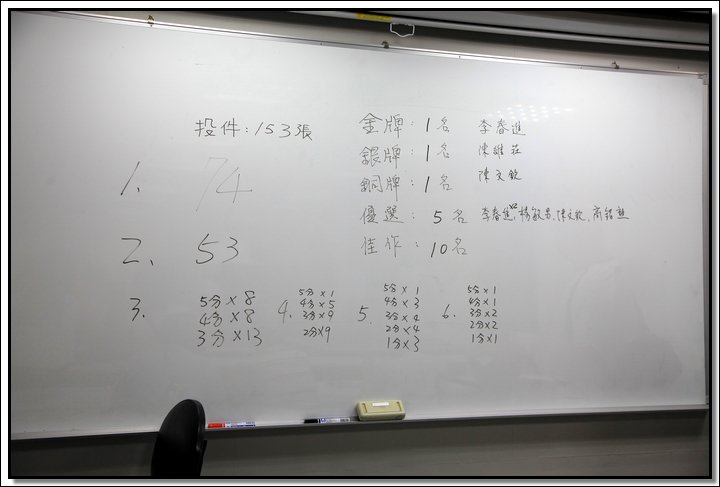 投件:153張
金牌:1名 李春進
銀牌:1名 陳維莊
銅牌:1名 陳文欽
優選:5名 李春進x2,楊敏男,陳文欽,商銘
佳作:10名
1. 74
2. 53
3.
5分×8
4分×8
3分×13
4.
5分×1
4分×5
3分×9
2分×9
5.
5分×1
4分×3
3分×4
2分×4
1分×3
6.
5分×1
4分×1
3分×2
2分×2
1分×1